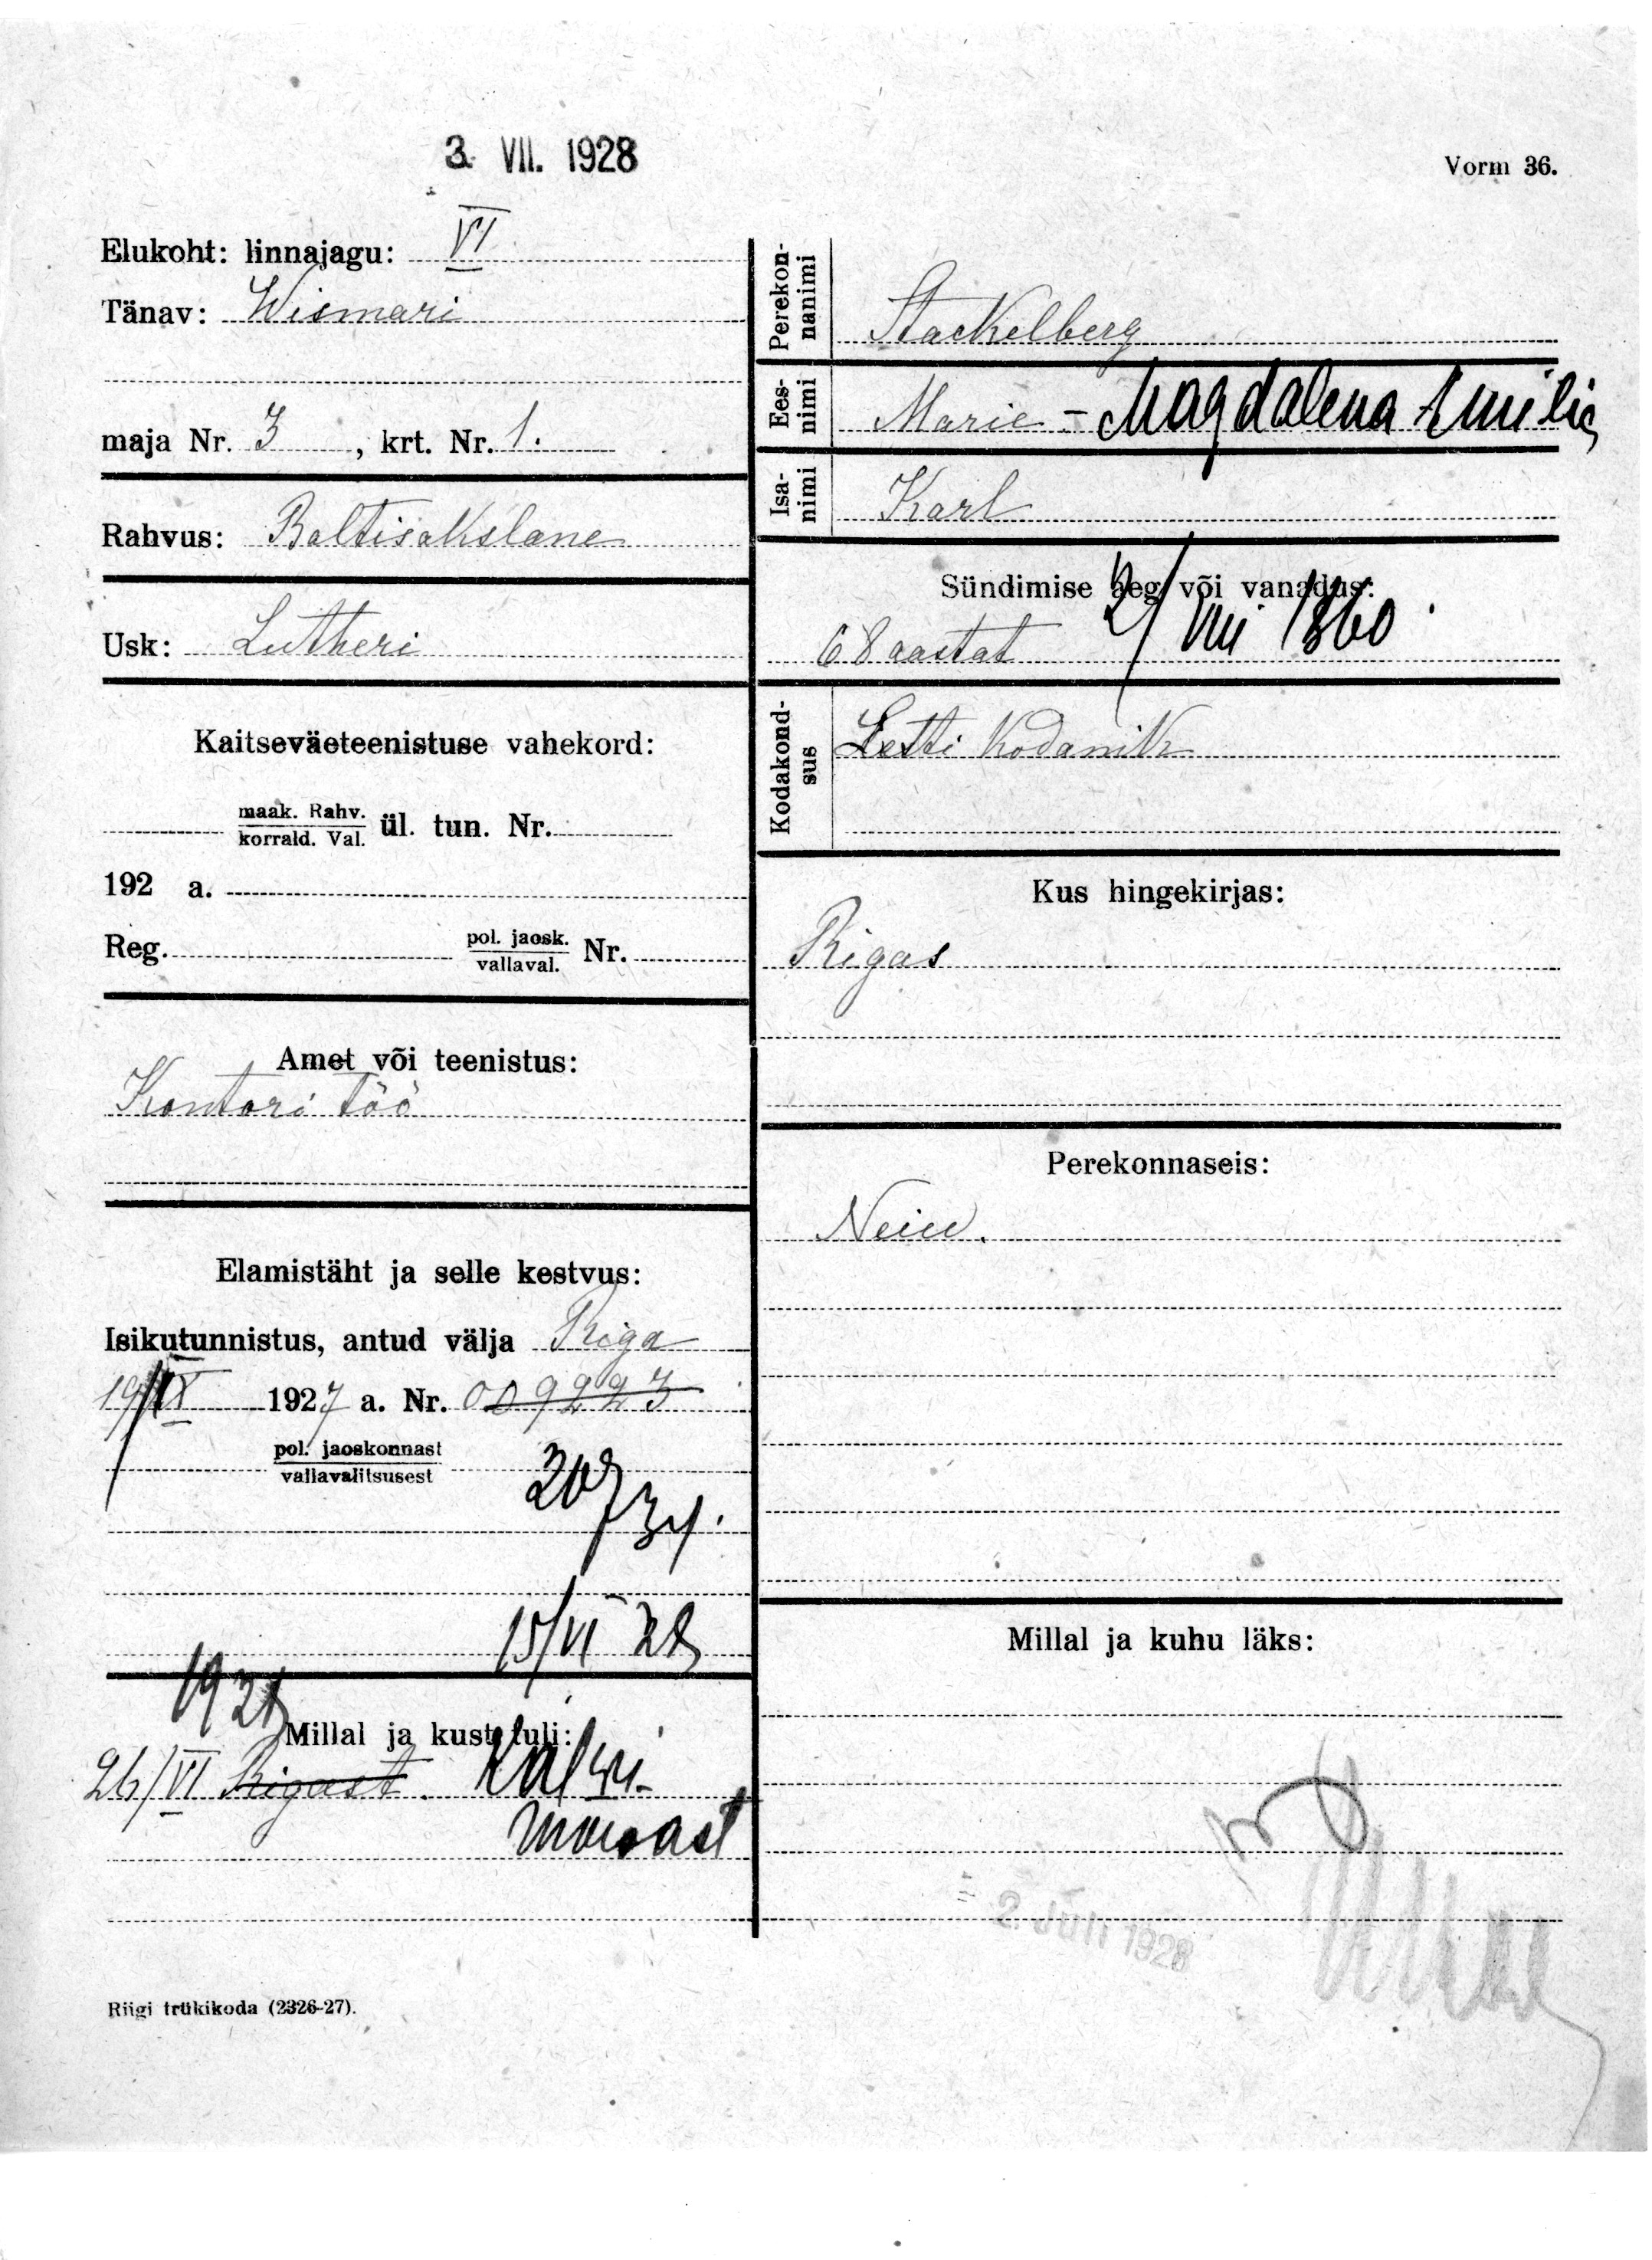 3. VII. 1928
Vorm 36.
Elukoht: linnajagu: VI
Tänav: Wismari
maja Nr. 3, krt. Nr. 1.
Rahvus: Baltisakslane
Usk: Lutheri
Kaitseväeteenistuse vahekord:
maak. Rahv.
korrald. Val. ül. tun. Nr.
192 a.
Reg. pol. jaosk.
vallaval. Nr.
Amet või teenistus:
Kontori töö
Elamistäht ja selle kestvus:
Isikutunnistus, antud välja Riga
19/IX 1927 a. Nr. 009223
pol. jaoskonnast
vallavalitsusest
15/VI 28
1928
Millal ja kust tuli:
26/VI Rigast. Kalwi-
moisast
Riigi trükikoda (2326-27).
Perekon-
nanimi
Stackelberg
Ees-
nimi
Marie - Magdalena Emilie
Isa-
nimi
Karl
Sündimise aeg või vanadus:
68 aastat 2/VIII 1860.
Kodakond-
sus
Letti Kodanik
Kus hingekirjas:
Rigas
Perekonnaseis:
Neiu.
Millal ja kuhu läks:
2. Juli 1928